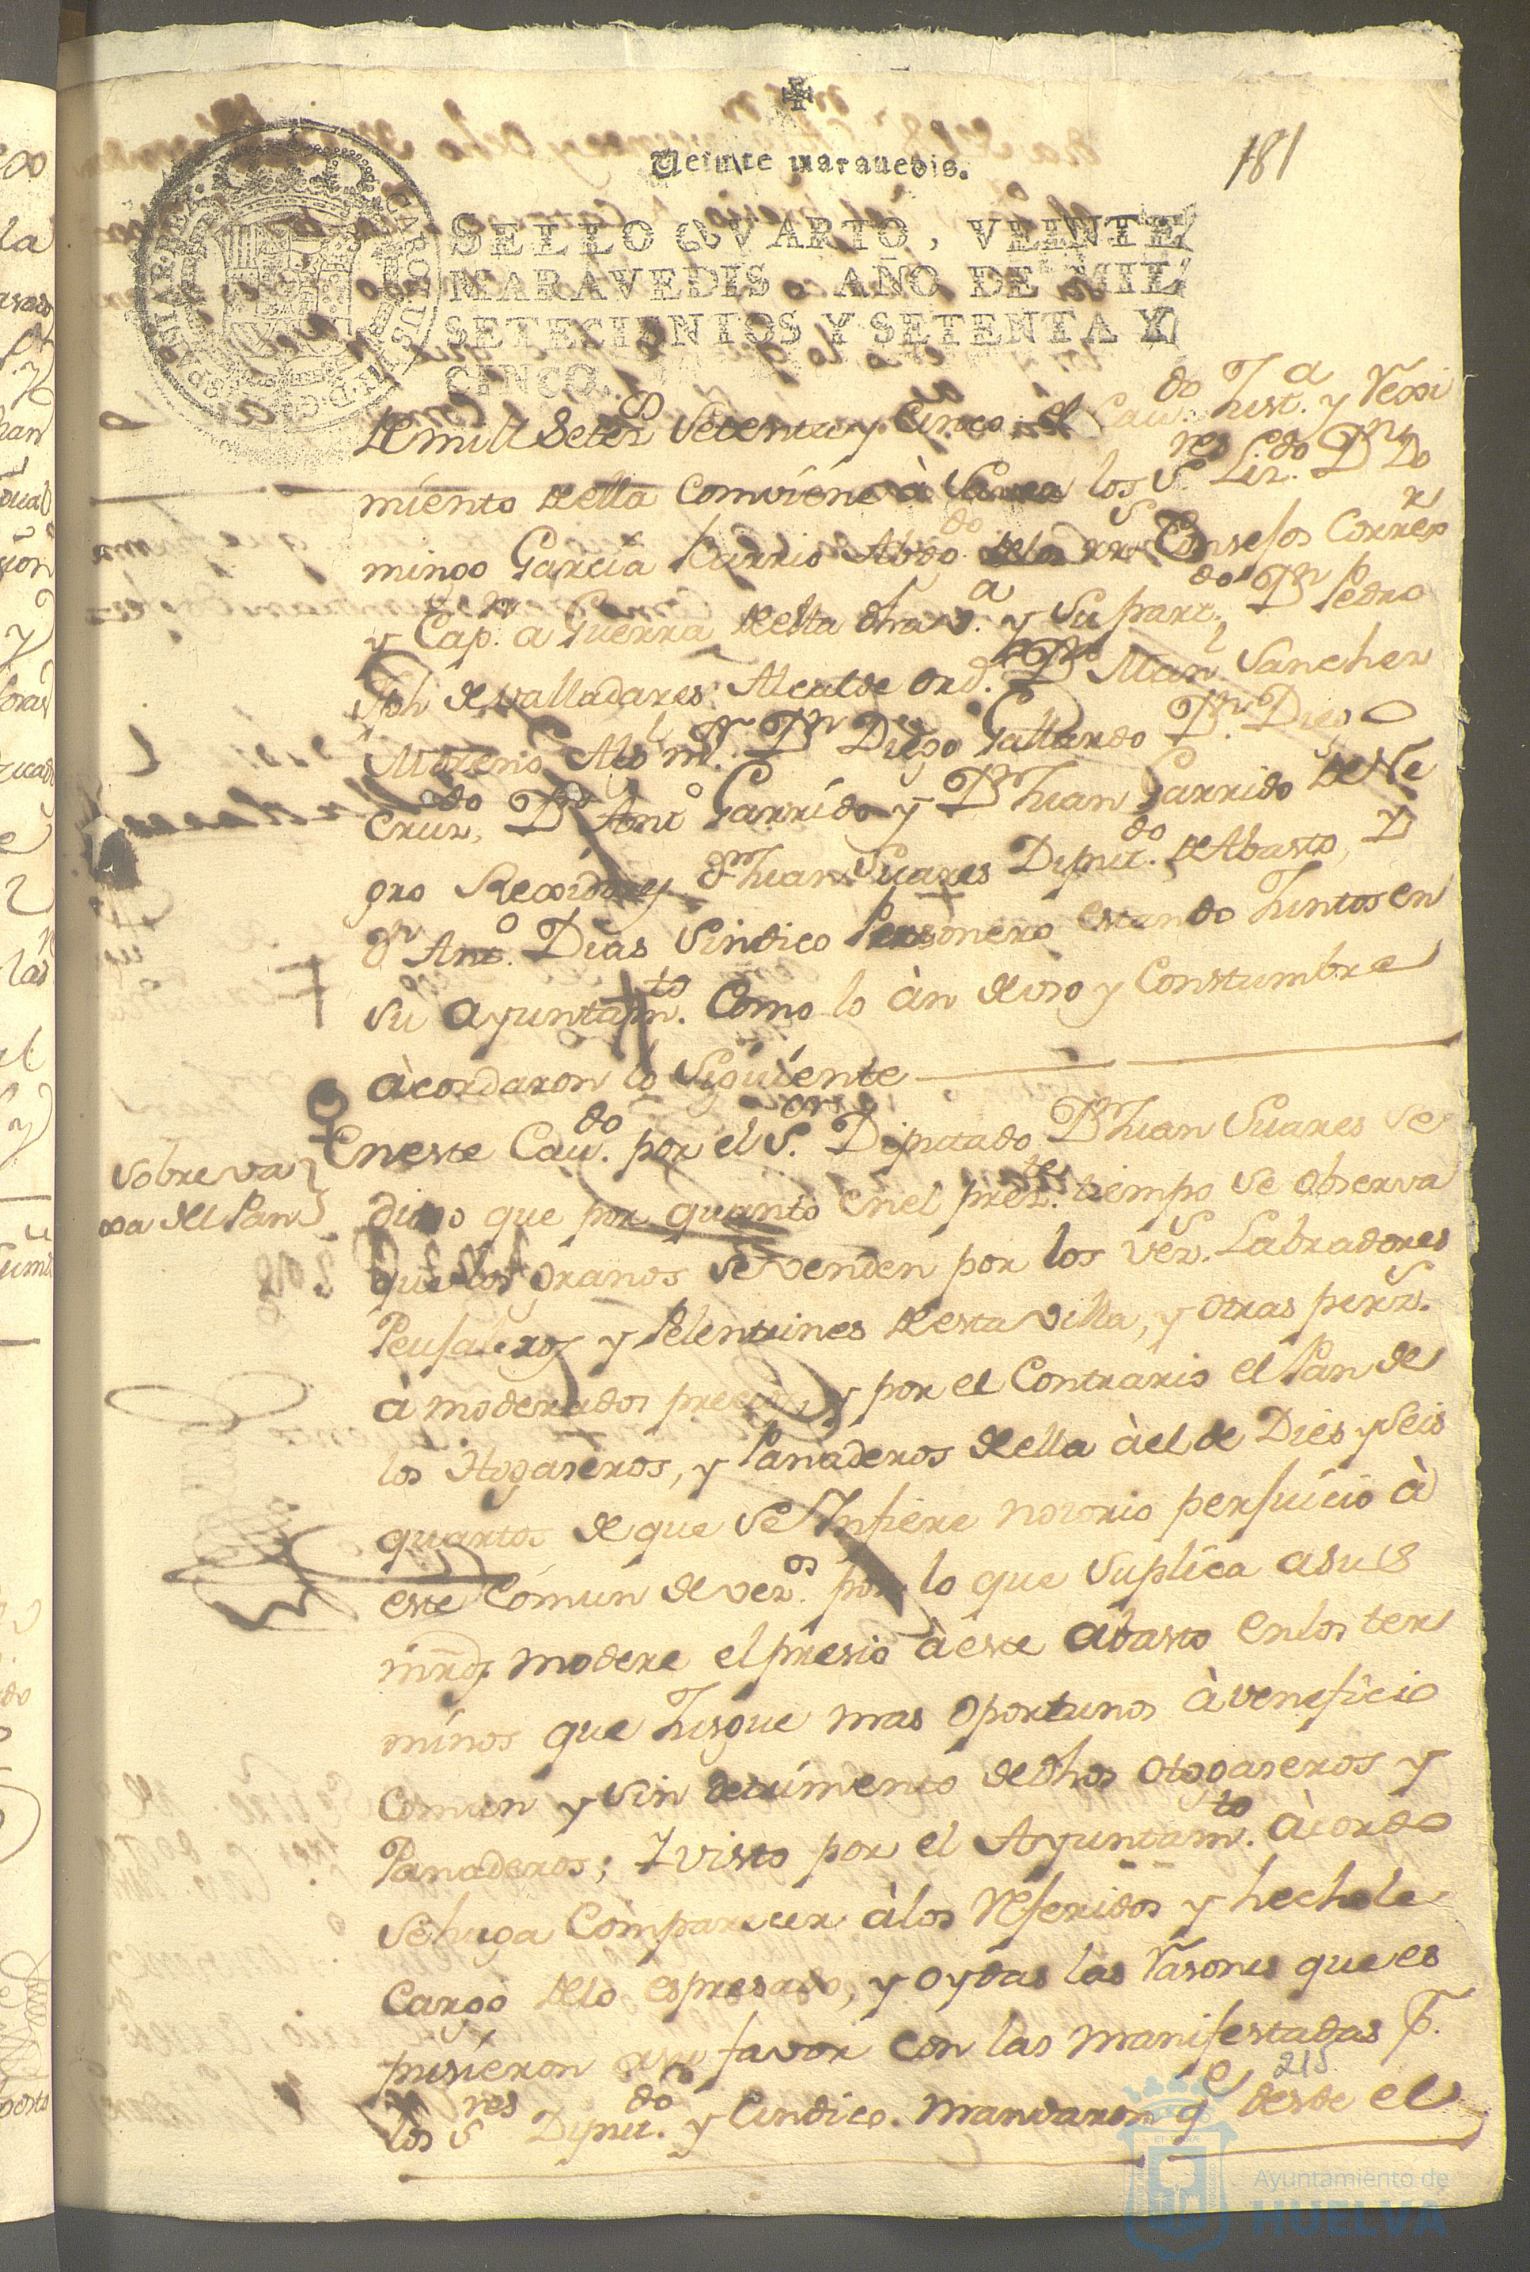 Veinte maravedis.
181
SELLO QVARTO, VEINTE
MARAVEDIS, AÑO DE MIL
SETECIENTOS Y SETENTA Y
CINCO.
de mill setez.os Setenta y Cinco, el Cav.do Just.a y Rexi
miento della Combiene à Saver los S.res Liz.do D.n Do
mingo García Barrio Abog.do de los R.s Consejos Corre.r
y Cap.n a Guerra desta dha v.a y Su part.do D.n Pedro
Jph de Valladares Alcalde Ord.o D.n Man.l Sanchez
Moreno Alg.l m.r D.n Diego Gallardo D.n Diego
Cruz, D.n Ant.o Garrido y D.n Juan Garrido de Ne
gro Rexidores D.n Juan Suares Diput.do de Abasto, Y
D.n Ant.o Dias Sindico Personero estando Juntos en
su Ayuntam.to Como lo àn de uso y Constumbre
àcordaron lo Siguiente
Sobre va
xa del Pan
En este Cav.do por el S.or Diputado D.n Juan Suares Se
dixo que por quanto en el prez.te tiempo se observa
que los granos se venden por los vez.s Labradores
Peujaleros y Pelentrines desta villa, y otras perz.s
à moderados precios, y por el Contrario el Pan de
los Hogaseros, y Panaderos della à el de Dies y Seis
quartos de que se Infiere notorio perjuicio à
este Cómun de vez.os por lo que Suplica a su S
mrds modere el presio à este abasto en los ter
minos que Jusgue mas oportunos à veneficio
Comun y sin detrimento de dhos Otogaseros y
Panaderos; Y visto por el Ayuntam.to àcordo
se haga Comparecer à los Referidos y hechole
Cargo delo espresado, y oydas las Rasones que es
pusieron a su favor con las manifestadas p.r
los S.res Diput.do y Cindico. Mandaron q.e desde el
215
Ayuntamiento de
HUELVA